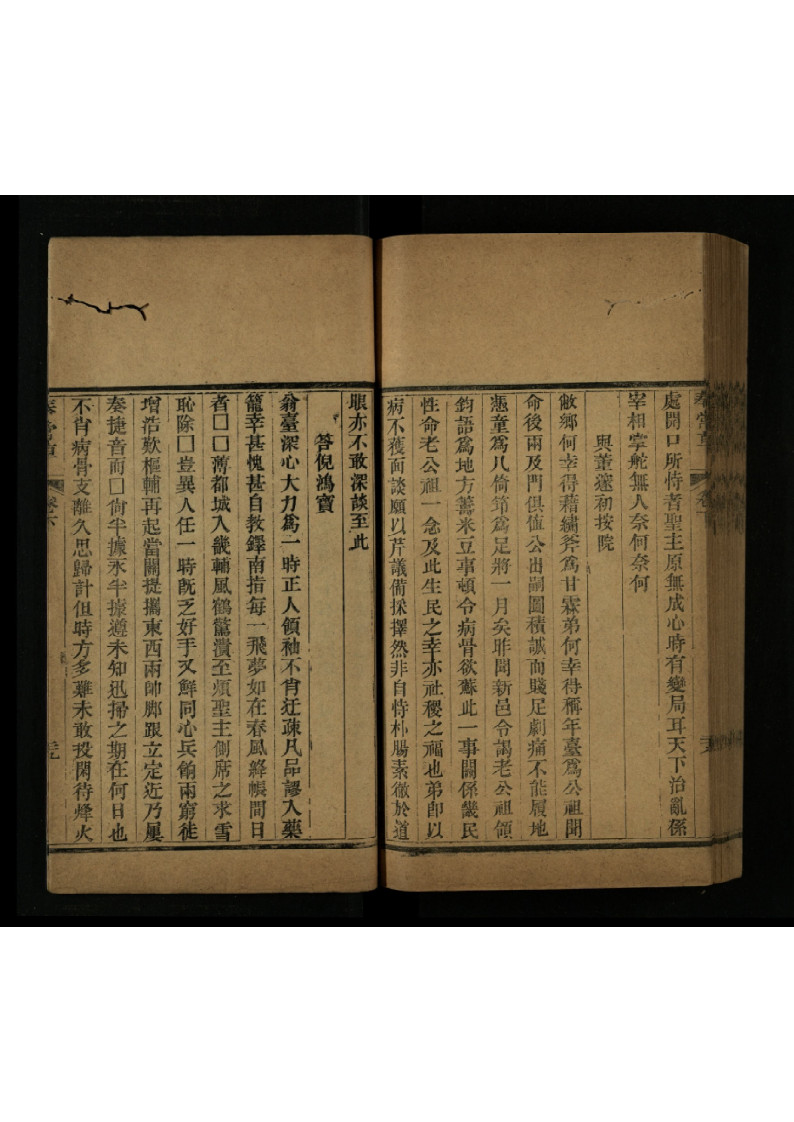 處開口所恃者聖主原無成心時有變局耳天下治亂係
宰相掌舵無人奈何奈何
與董邃初按院
敝鄉何幸得藉繡斧爲甘霖弟何幸得稱年臺爲公祖開
命後兩及門俱值公出嗣圖積誠而賤足劇痛不能履地
慿童爲几倚笻爲足將一月矣昨聞新邑令謁老公祖領
鈞語爲地方籌米豆事頓令病骨欲蘇此一事關係畿民
性命老公祖一念及此生民之幸亦社稷之福也弟卽以
病不獲面談願以芹議備採擇然非自恃朴腸素徹於道
眼亦不敢深談至此
答倪鴻寶
翁臺深心大力爲一時正人領袖不肖迂疎凡品謬入藥
籠幸甚愧甚自教鐸南指每一飛夢如在春風絳帳間日
者囗囗薄都城入畿輔風鶴驚潰至煩聖主側席之求雪
恥除囗豈異人任一時旣乏好手又鮮同心兵餉兩窮徒
增浩歎樞輔再起當關提攜東西兩帥脚跟立定近乃屢
奏捷音而囗尙半據永半據遵未知迅掃之期在何日也
不肖病骨支離久思歸計但時方多難未敢投閑待烽火
卷下